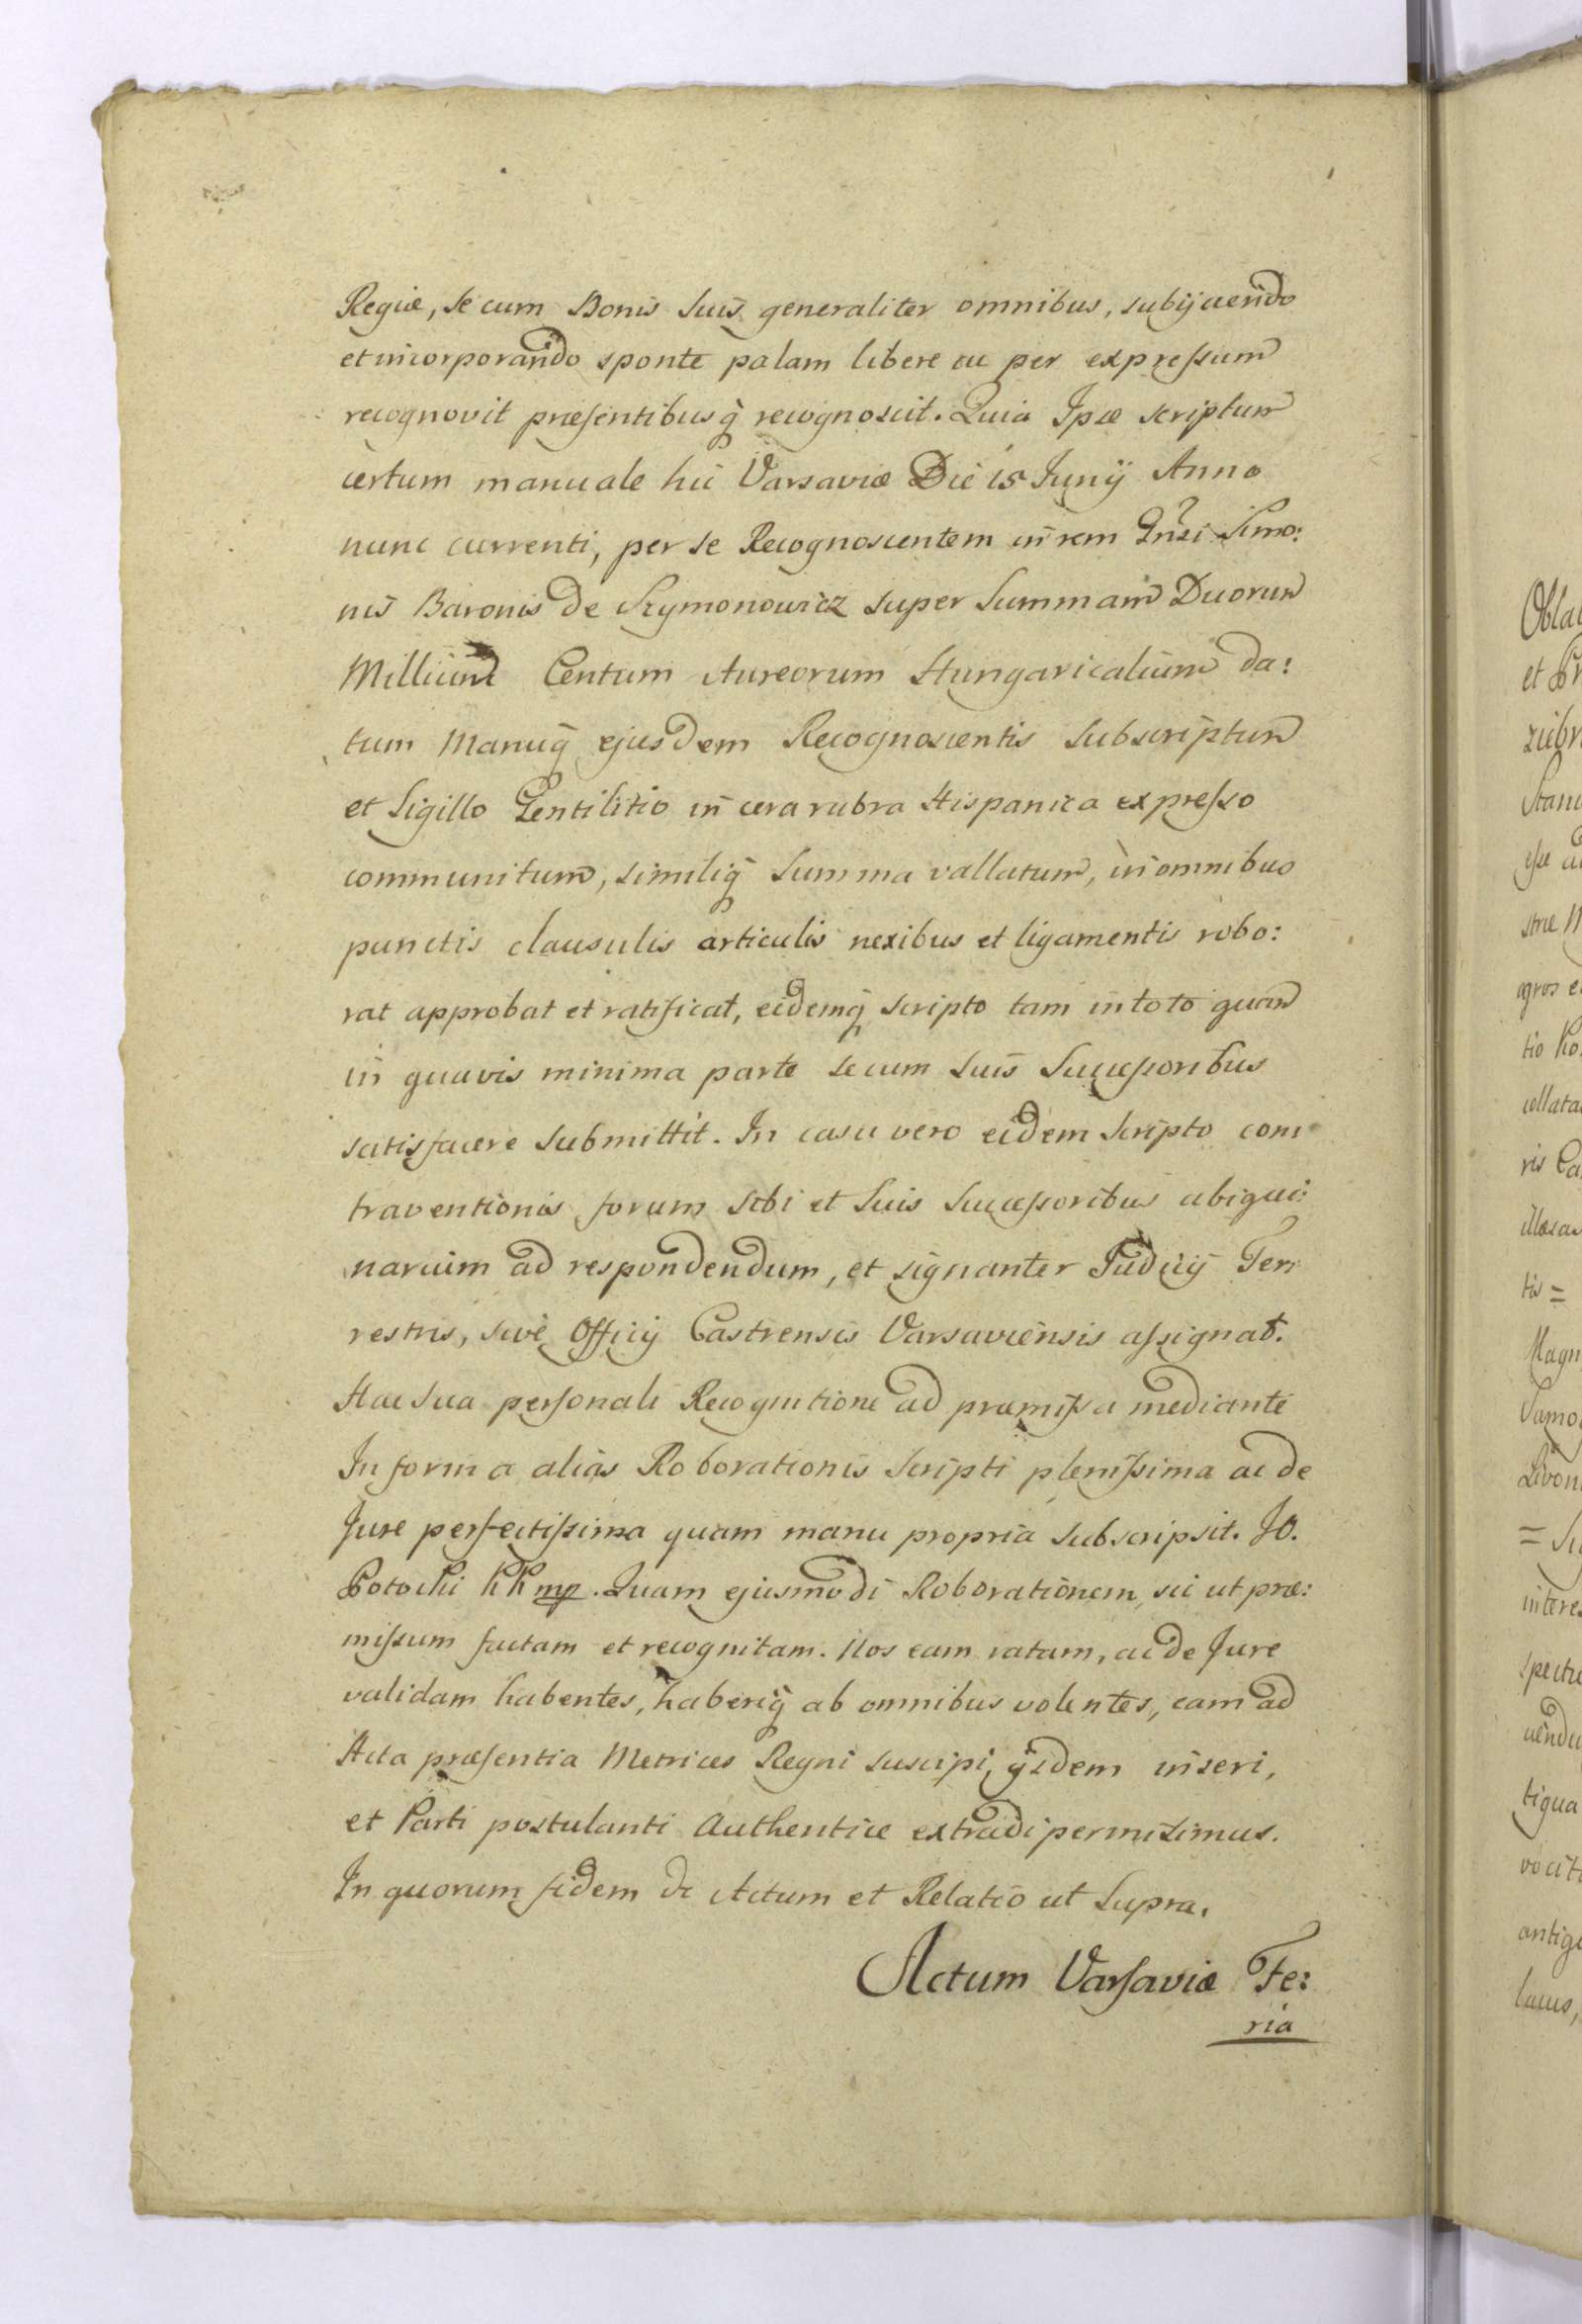 Regiæ, se cum Bonis suis generaliter omnibus, subijciendo
et incorporando sponte palam libere ac per expressum
recognovit præsentibusq̃ recognoscit. Quia Ipse scriptum
certum manuale hic Varsaviæ Die 15 Junij Anno
nunc currenti, per se Recognoscentem in rem Gñsi Simo:
nis Baronis de Szymonowicz super Summam Duorum
Millium Centum Aureorum Hungaricalium da:
tum Manuq̃ ejusdem Recognoscentis subscriptum
et Sigillo Gentilitio in cera rubra Hispanica expresso
communitum, similiq̃ Summa vallatum, in omnibus
punctis clausulis articulis nexibus et ligamentis robo:
rat approbat et ratificat, eidemq̃ scripto tam in toto quam
in quavis minima parte se cum suis Successoribus
satisfacere submittit. In casu vero eidem scripto con
traventionis forum sibi et suis Successoribus
ad respondendum, et signanter Judicij Ter
restris, sive Officij Castrensis Varsaviensis assignat.
Hac sua personali Recognitione ad præmissa mediante
In forma alias Roborationis scripti plenissima ac de
Jure perfectissima quam manu propria subscripsit. JO.
Potocki KK mp. Quam ejusmodi Roborationem, sic ut præ:
missum factam et recognitam. Nos eam ratam, ac de Jure
validam habentes, haberiq̃ ab omnibus volentes, eam ad
Acta præsentia Metrices Regni suscipi, ijsdem inseri,
et Parti postulanti Authentice extradi permisimus.
In quorum fidem &c Actum et Relatio ut Supra.
Actum Varsaviæ Fe:
ria
Obla
et
Stanc
agros
collata
ris Ca
tis =
Magn
tiqua
antiq